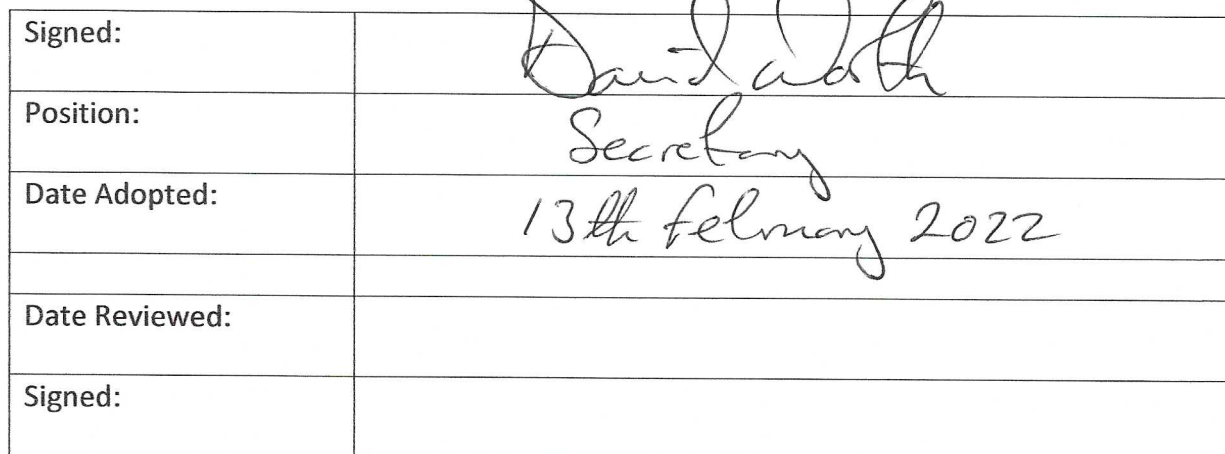 Signed: David Worth
Position: Secretary
Date Adopted: 13th February 2022
Date Reviewed:
Signed: